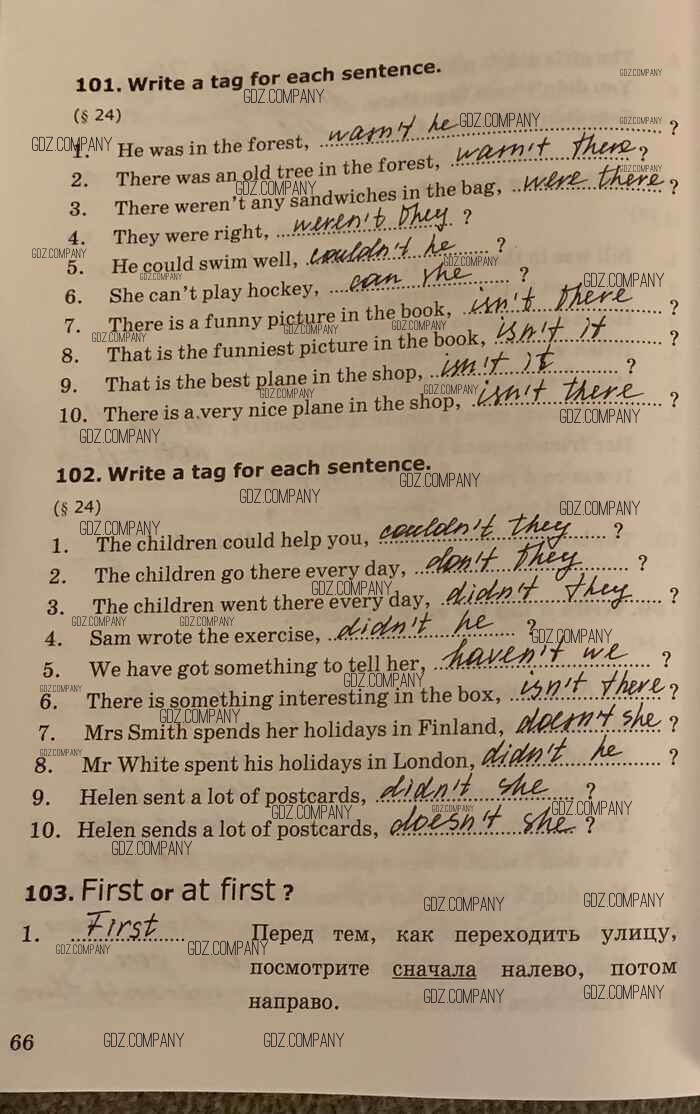 101. Write a tag for each sentence.
(§ 24)
1. He was in the forest, wasn't he ?
2. There was an old tree in the forest, wasn't there ?
3. There weren't any sandwiches in the bag, were there ?
4. They were right, weren't they ?
5. He could swim well, couldn't he ?
6. She can't play hockey, can she ?
7. There is a funny picture in the book, isn't there ?
8. That is the funniest picture in the book, isn't it ?
9. That is the best plane in the shop, isn't it ?
10. There is a very nice plane in the shop, isn't there ?
102. Write a tag for each sentence.
(§ 24)
1. The children could help you, couldn't they ?
2. The children go there every day, don't they ?
3. The children went there every day, didn't they ?
4. Sam wrote the exercise, didn't he ?
5. We have got something to tell her, haven't we ?
6. There is something interesting in the box, isn't there ?
7. Mrs Smith spends her holidays in Finland, doesn't she ?
8. Mr White spent his holidays in London, didn't he ?
9. Helen sent a lot of postcards, didn't she ?
10. Helen sends a lot of postcards, doesn't she ?
103. First or at first ?
1. First Перед тем, как переходить улицу,
посмотрите сначала налево, потом
направо.
66
GDZ.COMPANY